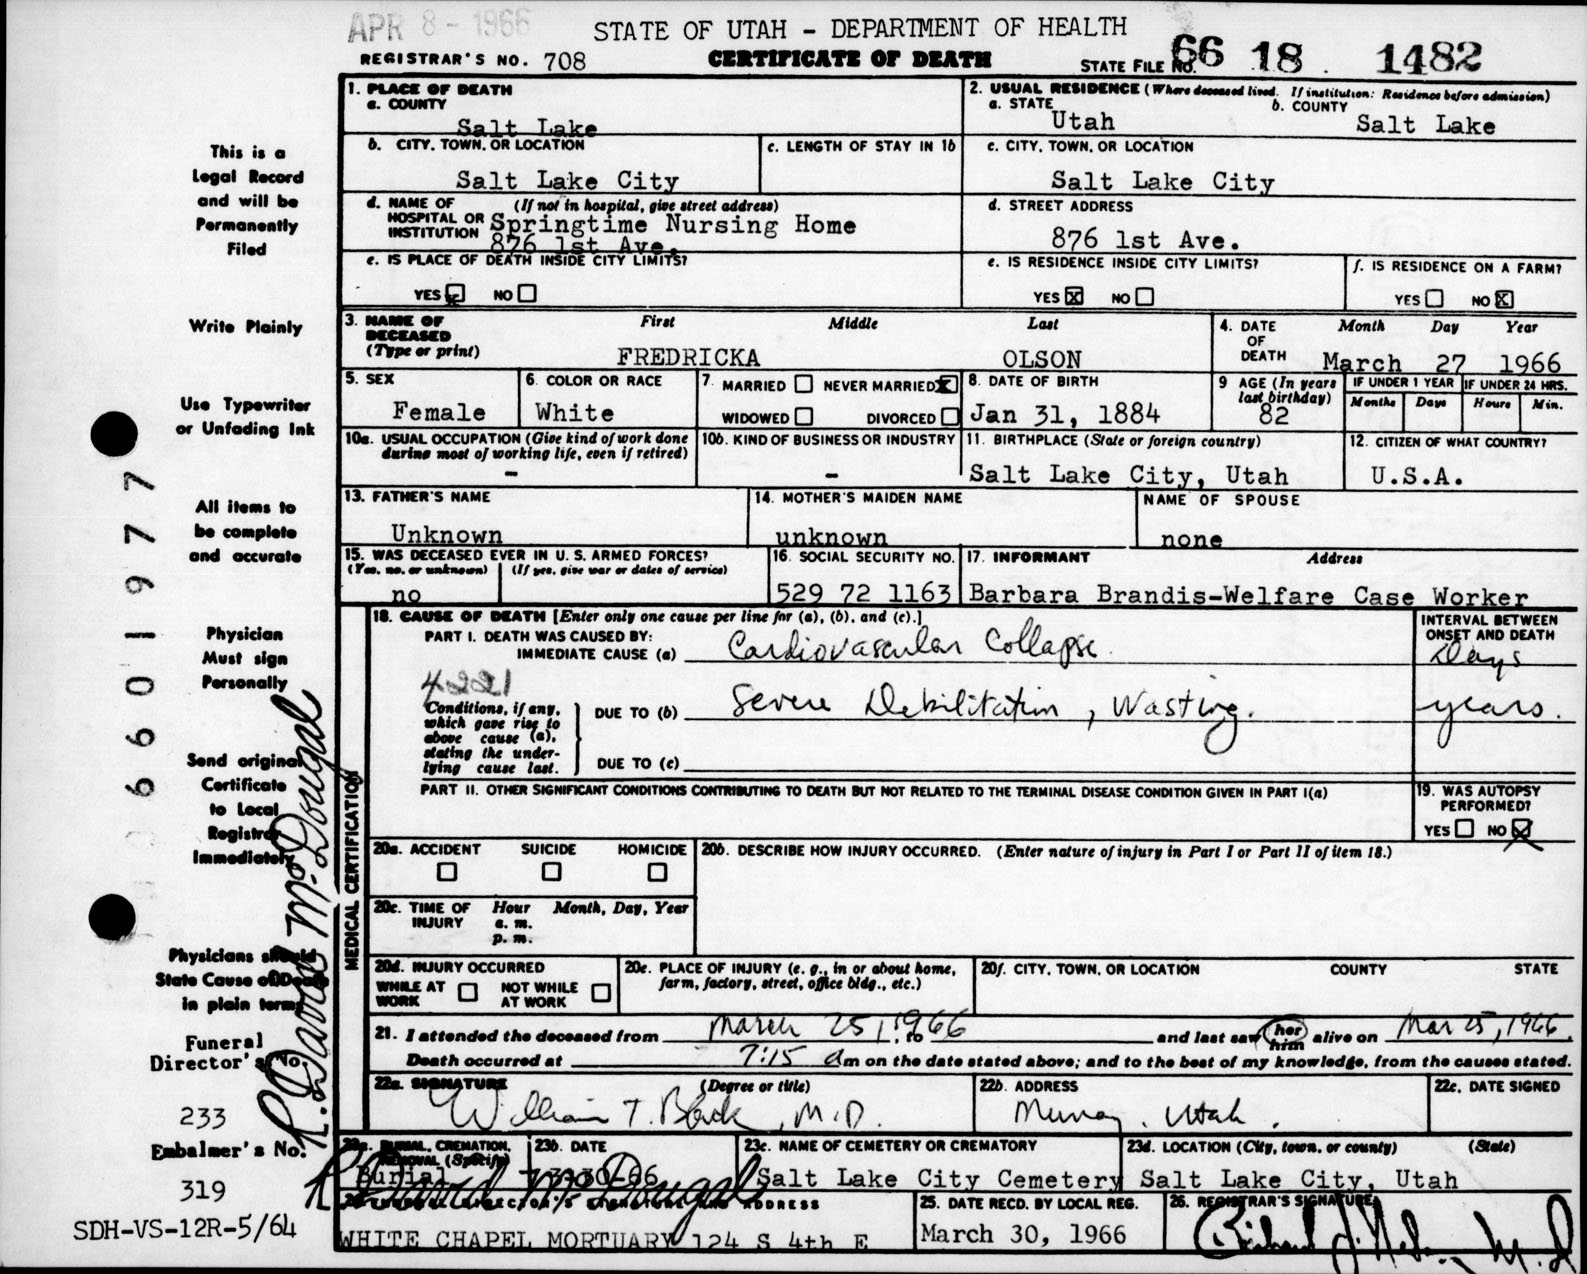 APR 8 - 1966
STATE OF UTAH - DEPARTMENT OF HEALTH
REGISTRAR'S NO. 708
CERTIFICATE OF DEATH
STATE FILE NO. 66 18 1482
This is a
Legal Record
and will be
Permanently
Filed
Write Plainly
Use Typewriter
or Unfading Ink
All items to
be complete
and accurate
Physician
Must sign
Personally
Send original
Certificate
to Local
Registrar
Immediately
Physicians should
State Cause of Death
in plain terms
Funeral
Director's No.
233
Embalmer's No.
319
SDH-VS-12R-5/64
6601977
R. David McDougal
1. PLACE OF DEATH
a. COUNTY
Salt Lake
2. USUAL RESIDENCE (Where deceased lived. If institution: Residence before admission)
a. STATE
Utah
b. COUNTY
Salt Lake
b. CITY, TOWN, OR LOCATION
Salt Lake City
c. LENGTH OF STAY IN 1b
c. CITY, TOWN, OR LOCATION
Salt Lake City
d. NAME OF HOSPITAL OR INSTITUTION (If not in hospital, give street address)
Springtime Nursing Home
876 1st Ave.
d. STREET ADDRESS
876 1st Ave.
e. IS PLACE OF DEATH INSIDE CITY LIMITS?
YES x NO
e. IS RESIDENCE INSIDE CITY LIMITS?
YES X NO
f. IS RESIDENCE ON A FARM?
YES NO X
3. NAME OF DECEASED (Type or print)
First Middle Last
FREDRICKA OLSON
4. DATE OF DEATH
Month Day Year
March 27 1966
5. SEX
Female
6. COLOR OR RACE
White
7. MARRIED NEVER MARRIED X
WIDOWED DIVORCED
8. DATE OF BIRTH
Jan 31, 1884
9 AGE (In years last birthday)
82
IF UNDER 1 YEAR
Months Days
IF UNDER 24 HRS.
Hours Min.
10a. USUAL OCCUPATION (Give kind of work done during most of working life, even if retired)
-
10b. KIND OF BUSINESS OR INDUSTRY
-
11. BIRTHPLACE (State or foreign country)
Salt Lake City, Utah
12. CITIZEN OF WHAT COUNTRY?
U.S.A.
13. FATHER'S NAME
Unknown
14. MOTHER'S MAIDEN NAME
unknown
NAME OF SPOUSE
none
15. WAS DECEASED EVER IN U. S. ARMED FORCES?
(Yes, no, or unknown) (If yes, give war or dates of service)
no
16. SOCIAL SECURITY NO.
529 72 1163
17. INFORMANT Address
Barbara Brandis-Welfare Case Worker
MEDICAL CERTIFICATION
18. CAUSE OF DEATH [Enter only one cause per line for (a), (b), and (c).]
PART I. DEATH WAS CAUSED BY:
IMMEDIATE CAUSE (a) Cardiovascular Collapse
INTERVAL BETWEEN ONSET AND DEATH
Days
4221
Conditions, if any,
which gave rise to
above cause (a),
stating the under-
lying cause last.
DUE TO (b) Severe Debilitation, Wasting.
years.
DUE TO (c)
PART II. OTHER SIGNIFICANT CONDITIONS CONTRIBUTING TO DEATH BUT NOT RELATED TO THE TERMINAL DISEASE CONDITION GIVEN IN PART I(a)
19. WAS AUTOPSY PERFORMED?
YES NO X
20a. ACCIDENT SUICIDE HOMICIDE
20b. DESCRIBE HOW INJURY OCCURRED. (Enter nature of injury in Part I or Part II of item 18.)
20c. TIME OF INJURY Hour Month, Day, Year
a. m.
p. m.
20d. INJURY OCCURRED
WHILE AT WORK NOT WHILE AT WORK
20e. PLACE OF INJURY (e. g., in or about home, farm, factory, street, office bldg., etc.)
20f. CITY, TOWN, OR LOCATION COUNTY STATE
21. I attended the deceased from March 25, 1966 to and last saw her him alive on Mar 25, 1966.
Death occurred at 7:15 am on the date stated above; and to the best of my knowledge, from the causes stated.
22a. SIGNATURE (Degree or title)
William T. Black, M.D.
22b. ADDRESS
Murray, Utah.
22c. DATE SIGNED
23a. BURIAL, CREMATION, REMOVAL (Specify)
Burial
23b. DATE
3-30-66
23c. NAME OF CEMETERY OR CREMATORY
Salt Lake City Cemetery
23d. LOCATION (City, town, or county) (State)
Salt Lake City, Utah
R David McDougal
24. FUNERAL DIRECTOR'S SIGNATURE AND ADDRESS
WHITE CHAPEL MORTUARY 124 S 4th E
25. DATE RECD. BY LOCAL REG.
March 30, 1966
26. REGISTRAR'S SIGNATURE
M.D.